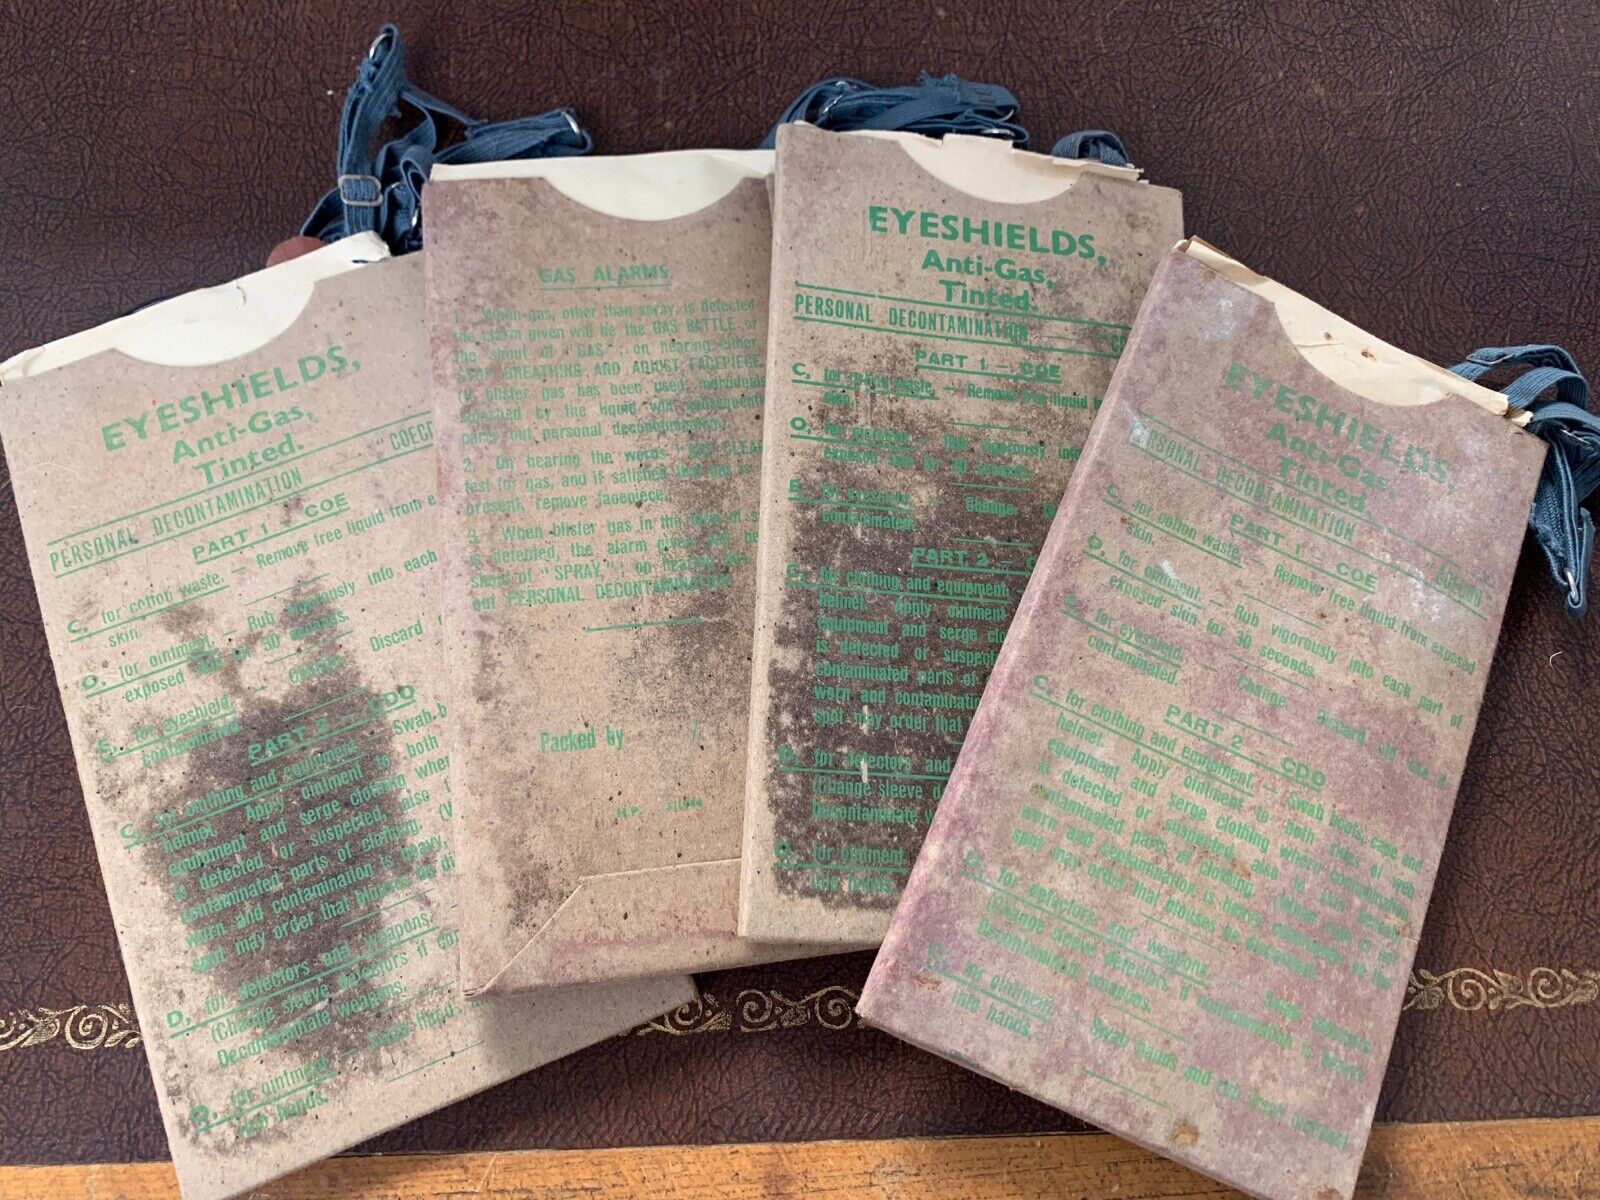 EYESHIELDS,
Anti-Gas,
Tinted.
PERSONAL DECONTAMINATION "COECD
PART 1 — COE
C, for cotton waste. — Remove free liquid from e
skin.
O, for ointment. — Rub vigorously into each
exposed 30 seconds.
E, for eyeshield. — Change. Discard
contaminated
PART 2 — CDO
C, for clothing and equipment. — Swab b
helmet. Apply ointment to both
equipment and serge clothing whe
is detected or suspected, also
contaminated parts of clothing. (V
worn and contamination is heavy,
spot may order that blouses be di
D, for detectors and weapons.
(Change sleeve detectors if co
Decontaminate weapons.
O, for ointment. — Swab
into hands.
GAS ALARMS.
1. When gas, other than spray, is detected
the alarm given will be the GAS RATTLE or
the shout of "GAS"; on hearing either
STOP BREATHING AND ADJUST FACEPIECE
If blister gas has been used, individuals
splashed by the liquid will subsequent
carry out personal decontamination.
2. On hearing the words "GAS CLEAR
test for gas, and if satisfied that gas is
present, remove facepiece.
3. When blister gas in the form of s
is detected, the alarm given will be
shout of "SPRAY,"; on hearing
out PERSONAL DECONTAMINATION
Packed by
H.P.
EYESHIELDS,
Anti-Gas,
Tinted.
PERSONAL DECONTAMINATION — C
PART 1 — COE
C, for cotton waste. — Remove free liquid
skin.
O, for ointment. Rub vigorously into
exposed skin for 30 seconds.
E, for eyeshield. Change. Di
contaminated.
PART 2 — C
C, for clothing and equipment.
helmet. Apply ointment
equipment and serge clo
is detected or suspecte
contaminated parts of
worn and contamination
spot may order that
D, for detectors and
(Change sleeve d
Decontaminate w
O, for ointment.
into hands.
EYESHIELDS,
Anti-Gas,
Tinted.
PERSONAL DECONTAMINATION — "COECDO
PART 1 — COE
C, for cotton waste. — Remove free liquid from exposed
skin.
O, for ointment. — Rub vigorously into each part of
exposed skin for 30 seconds.
E, for eyeshield. — Change. Discard
contaminated.
PART 2 — CDO
C, for clothing and equipment. — Swab boots, cape and
helmet. Apply ointment to both sides of web
equipment and serge clothing where contamination
is detected or suspected, also to
contaminated parts of clothing. (When
worn and contamination is heavy,
spot may order that blouses be discarded.
D, for detectors and weapons. — Swab
(Change sleeve detectors if contamination is heavy
Decontaminate weapons.
O, for ointment. — Swab hands and rub fresh ointment
into hands.